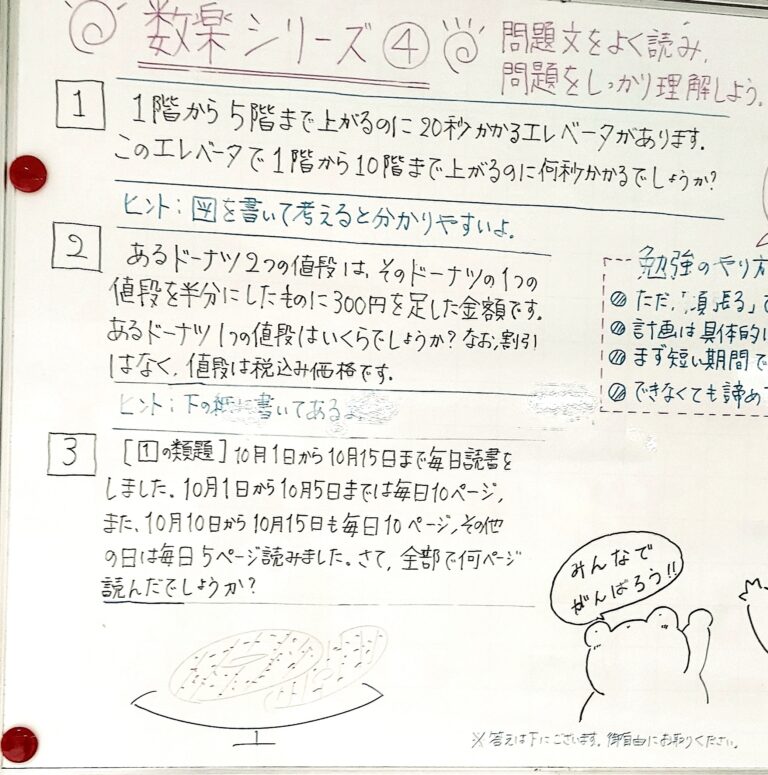 数楽シリーズ④
問題文をよく読み、
問題をしっかり理解しよう。
1
1階から5階まで上がるのに20秒かかるエレベータがあります.
このエレベータで1階から10階まで上がるのに何秒かかるでしょうか?
ヒント:図を書いて考えると分かりやすいよ.
2
あるドーナツ2つの値段は、そのドーナツの1つの
値段を半分にしたものに300円を足した金額です.
あるドーナツ1つの値段はいくらでしょうか?なお、割引
はなく、値段は税込み価格です.
ヒント:下の 書いてあるよ
3
[1の類題]10月1日から10月15日まで毎日読書を
しました.10月1日から10月5日までは毎日10ページ,
また、10月10日から10月15日も毎日10ページ,その他
の日は毎日5ページ読みました.さて,全部で何ページ
読んだでしょうか?
勉強のやり方
ただ、「頑張る」で
計画は具体的に
まず短い期間で
できなくても諦め
みんなで
がんばろう!!
※答えは下にございます.御自由にお取りください.